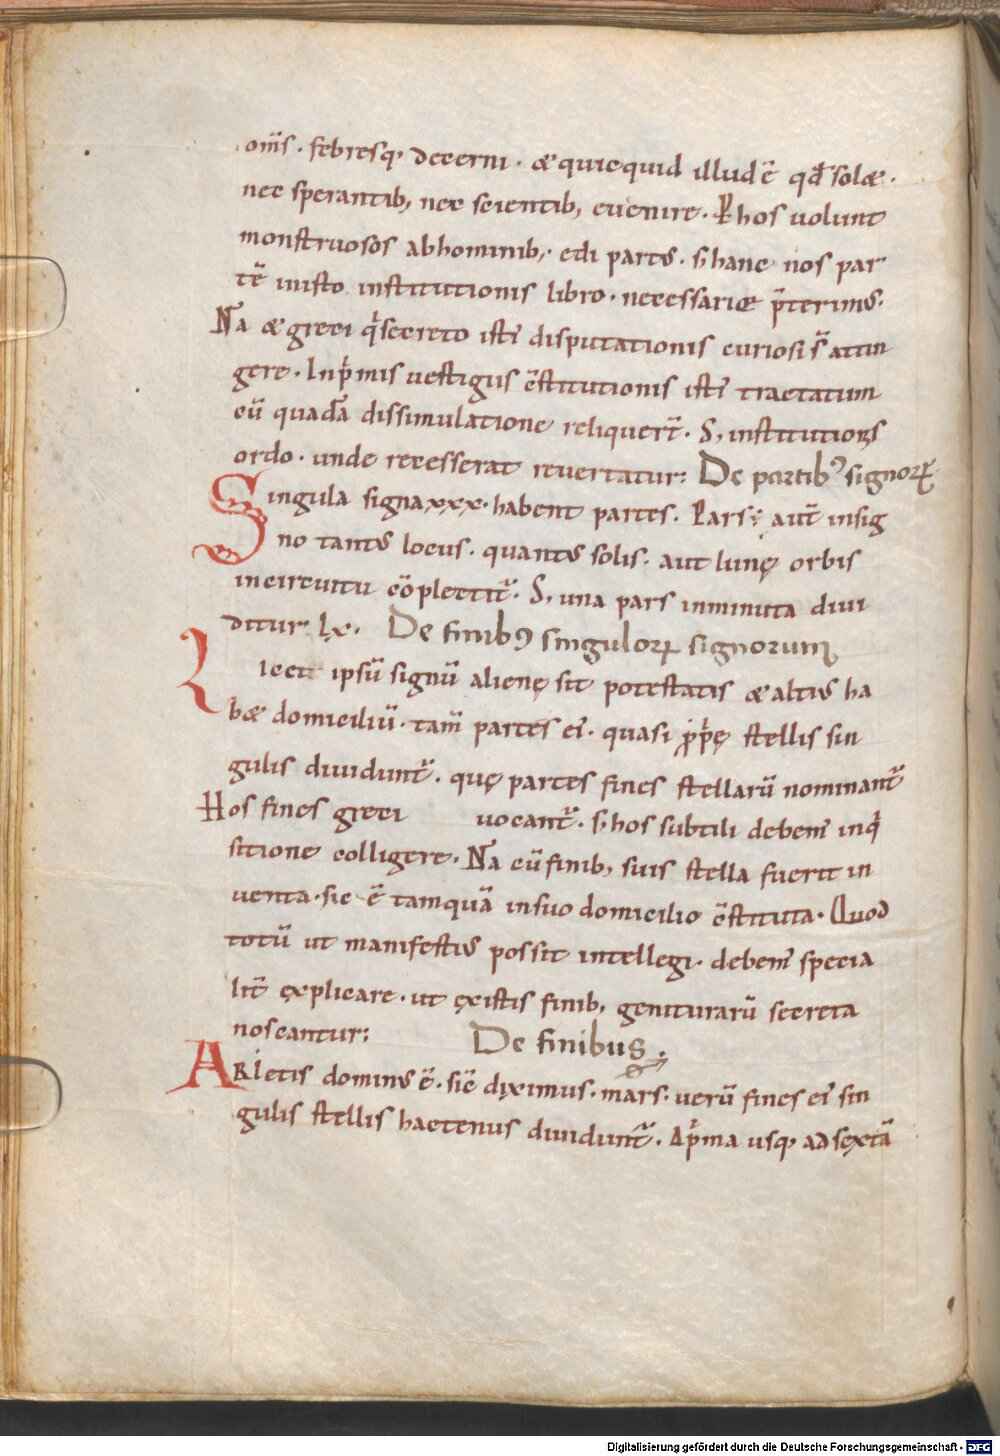 om̄s · febresq; decerni · & quicquid illud ē qđ sol& ·
nec sperantib; nec scientib; euenire · Phos uolunt
monstruosos abhominib; · edi partus · s; hanc nos par
tē inisto institutionis libro · necessariae p̄terimus ·
Nā & greci q̇secreto isti disputationis curiosi s̄ attin
gere · Inp̄mis uestigus c̄stitutionis isti tractatum
cū quadā dissimulatione reliquer̄t · S; institutionis
ordo · unde recesserat reuertatur: De partib᾽ signoꝝ
Singula signa xxx · habent partes · Pars aut̄ insig
no tantus locus · quantus solis · aut lunę orbis
incircuitu c̄oplectit̄ · S; una pars inminuta diui
ditur lx · De finib᾽ singuloꝝ signorum
Licet ipsū signū alienę sit potestatis & altius ha
b& domiciliū · tam̄ partes ei᾽ · quasi ꝓp̄ę stellis sin
gulis diuidunt̄ · quę partes fines stellarū nominant̄
Hos fines greci uocant̄ · s; hos subtili debem᾽ inq̇
sitione colligere · Nā cū finib; suis stella fuerit in
uenta · sic ē tamquā insuo domicilio c̄stituta · Quod
totū ut manifestius possit intellegi · debem᾽ specia
lit̄ explicare · ut ęxistis finib; geniturarū secreta
noscantur: De finibus ·
ARIetis dominus ē · sic̄ diximus · mars · uerū fines ei᾽ sin
gulis stellis hactenus diuidunt̄ · Ap̄ma usq; ad sextā
Digitalisierung gefördert durch die Deutsche Forschungsgemeinschaft · DFG